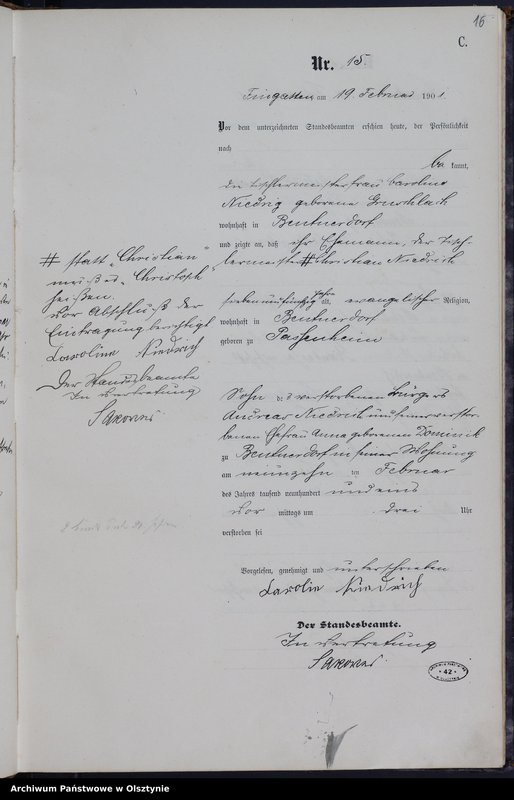 16
C.
Nr. 15.
am 19. Februar 1901.
Vor dem unterzeichneten Standesbeamten erschien heute, der Persönlichkeit
nach
bekannt,
die Tischlermeisterfrau Caroline
Niedrig geborene
wohnhaft in Beutnerdorf
und zeigte an, daß ihr Ehemann, der Tisch-
lermeister # Christian Niedrich
siebenundfünfzig Jahre alt, evangelischer Religion,
wohnhaft in Beutnerdorf
geboren zu Passenheim
Sohn des verstorbenen Bürgers
Andreas Niedrich und seiner verstor-
benen Ehefrau Anna geborenen Dominick
zu Beutnerdorf in seiner Wohnung
am neunzehn ten Februar
des Jahres tausend neunhundert und eins
vor mittags um drei Uhr
verstorben sei
Vorgelesen, genehmigt und unterschrieben
Carolin Niedrich
Der Standesbeamte.
In Vertretung
# statt "Christian"
muß es "Christoph"
heißen.
Vor Abschluß der
Eintragung berichtigt
Caroline Niedrich
Der Standesbeamte
In Vertretung
42
Archiwum Państwowe w Olsztynie